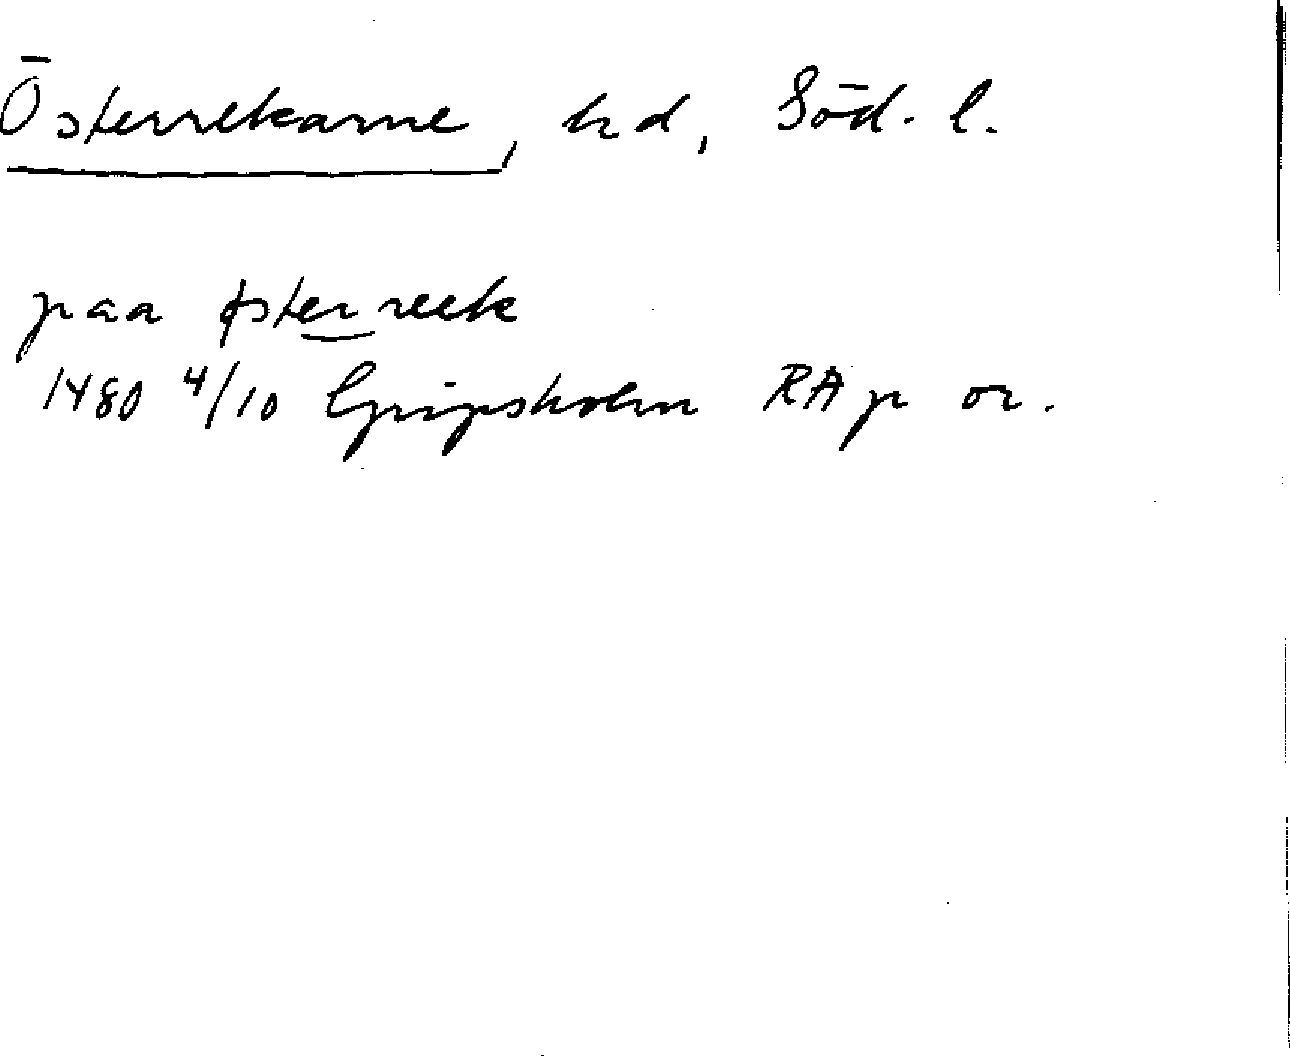 Österrekarne, hd, Söd. l.
paa østerreek
1480 4/10 Gripsholm RAp or.